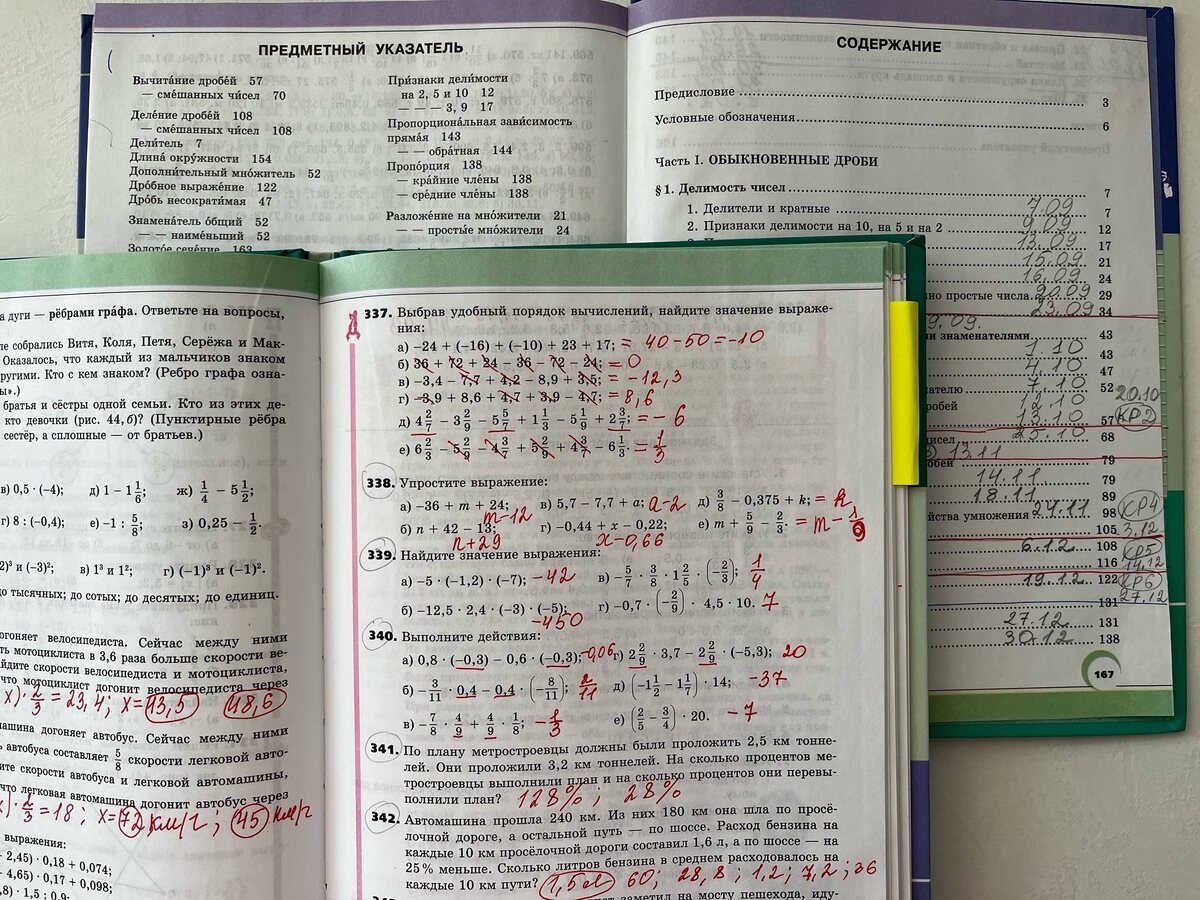 ПРЕДМЕТНЫЙ УКАЗАТЕЛЬ
Вычита́ние дробе́й 57
— сме́шанных чи́сел 70
Деле́ние дробе́й 108
— сме́шанных чи́сел 108
Дели́тель 7
Длина́ окру́жности 154
Дополни́тельный мно́житель 52
Дро́бное выраже́ние 122
Дробь несократи́мая 47
Знамена́тель о́бщий 52
— — наиме́ньший 52
Золото́е сече́ние 163
При́знаки дели́мости
на 2, 5 и 10 12
— — — 3, 9 17
Пропорциона́льная зави́симость
пряма́я 143
— — обра́тная 144
Пропо́рция 138
— кра́йние чле́ны 138
— сре́дние чле́ны 138
Разложе́ние на мно́жители 21
— — просты́е мно́жители 24
СОДЕРЖАНИЕ
Предисловие 3
Условные обозначения 6
Часть I. ОБЫКНОВЕННЫЕ ДРОБИ
§ 1. Делимость чисел 7
1. Делители и кратные 7.09 7
2. Признаки делимости на 10, на 5 и на 2 9.09 12
13.09 17
15.09 21
16.09 24
но простые числа 20.09 29
23.09 34
9.09.
и знаменателями 43
1.10 43
4.10 47
ателю 7.10 52
робей 12.10 20.10
13.10 57 КР2
исел 25.10 68
обей 13.11 79
14.11 79
18.11 89
йства умножения 24.11 98 КР4
105 3.12
6.12 108 КР5
116 14.12
19.12 122 КР6
131 27.12
27.12 131
30.12 138
167
а дуги — рёбрами гра́фа. Ответьте на вопросы,
ле собрались Витя, Коля, Петя, Серёжа и Мак-
Оказалось, что каждый из мальчиков знаком
ругими. Кто с кем знаком? (Ребро графа озна-
ы».)
братья и сёстры одной семьи. Кто из этих де-
кто девочки (рис. 44, б)? (Пунктирные рёбра
сестёр, а сплошные — от братьев.)
в) 0,5 · (–4); д) 1 – 1 1/6; ж) 1/4 – 5 1/2;
г) 8 : (–0,4); е) –1 : 5/8; з) 0,25 – 1/2.
2)³ и (–3)²; в) 1³ и 1²; г) (–1)³ и (–1)².
до тысячных; до сотых; до десятых; до единиц.
догоняет велосипедиста. Сейчас между ними
ть мотоциклиста в 3,6 раза больше скорости ве-
айдите скорости велосипедиста и мотоциклиста,
что мотоциклист догонит велосипедиста через
x) · 2/3 = 23,4; x = 13,5 48,6
машина догоняет автобус. Сейчас между ними
ь автобуса составляет 5/8 скорости легковой авто-
ите скорости автобуса и легковой автомашины,
что легковая автомашина догонит автобус через
x) · 2/3 = 18; x = 72 км/г; 45 км/г
выражения:
– 2,45) · 0,18 + 0,074;
– 4,65) · 0,17 + 0,098;
,8) · 1,5 : 0,9;
Д
337. Выбрав удобный порядок вычислений, найдите значение выраже-
ния:
а) –24 + (–16) + (–10) + 23 + 17; = 40 – 50 = –10
б) 36 + 72 + 24 – 36 – 72 – 24; = 0
в) –3,4 – 7,7 + 4,2 – 8,9 + 3,5; = –12,3
г) –3,9 + 8,6 + 4,7 + 3,9 – 4,7; = 8,6
д) 4 2/7 – 3 2/9 – 5 5/7 + 1 1/3 – 5 1/9 + 2 3/7; = –6
е) 6 2/3 – 5 2/9 – 4 3/7 + 5 2/9 + 4 3/7 – 6 1/3. = 1/3
338. Упростите выражение:
а) –36 + m + 24; m – 12 в) 5,7 – 7,7 + a; a – 2 д) 3/8 – 0,375 + k; = k
б) n + 42 – 13; n + 29 г) –0,44 + x – 0,22; x – 0,66 е) m + 5/9 – 2/3. = m – 1/9
339. Найдите значение выражения:
а) –5 · (–1,2) · (–7); –42 в) –5/7 · 3/8 · 1 2/5 · (–2/3); 1/4
б) –12,5 · 2,4 · (–3) · (–5); –450 г) –0,7 · (–2/9) · 4,5 · 10. 7
340. Выполните действия:
а) 0,8 · (–0,3) – 0,6 · (–0,3); –0,06 г) 2 2/9 · 3,7 – 2 2/9 · (–5,3); 20
б) –3/11 · 0,4 – 0,4 · (–8/11); 2/11 д) (–1 1/2 – 1 1/7) · 14; –37
в) –7/8 · 4/9 + 4/9 · 1/8; –1/3 е) (2/5 – 3/4) · 20. –7
341. По плану метростроевцы должны были проложить 2,5 км тонне-
лей. Они проложили 3,2 км тоннелей. На сколько процентов ме-
тростроевцы выполнили план и на сколько процентов они перевы-
полнили план? 128%; 28%
342. Автомашина прошла 240 км. Из них 180 км она шла по просё-
лочной дороге, а остальной путь — по шоссе. Расход бензина на
каждые 10 км просёлочной дороги составил 1,6 л, а по шоссе — на
25% меньше. Сколько литров бензина в среднем расходовалось на
каждые 10 км пути? 1,5 л 60; 28,8; 1,2; 7,2; 36
заметил на мосту пешехода, иду-